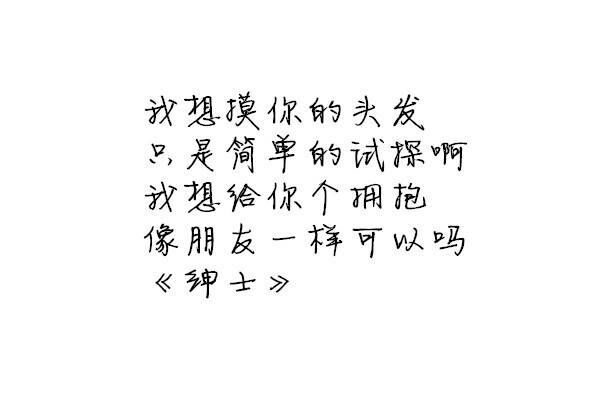 我想摸你的头发
只是简单的试探啊
我想给你个拥抱
像朋友一样可以吗
《绅士》